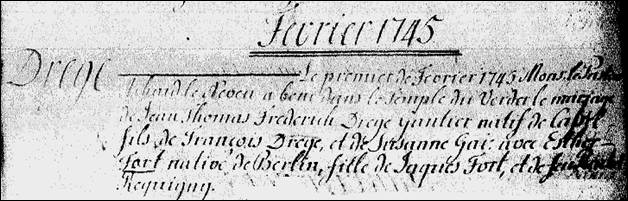 Fevrier 1745
Drege
Le premier de Fevrier 1745 Mons. le
le Neveu a beni dans le Temple du Verder le mariage
de Jean Thomas Frederich Drege Gautier natif de
fils de François Drege, et de Susanne Gai: avec Esther
Fort native de Berlin, fille de Jaques Fort, et de
Requigny.